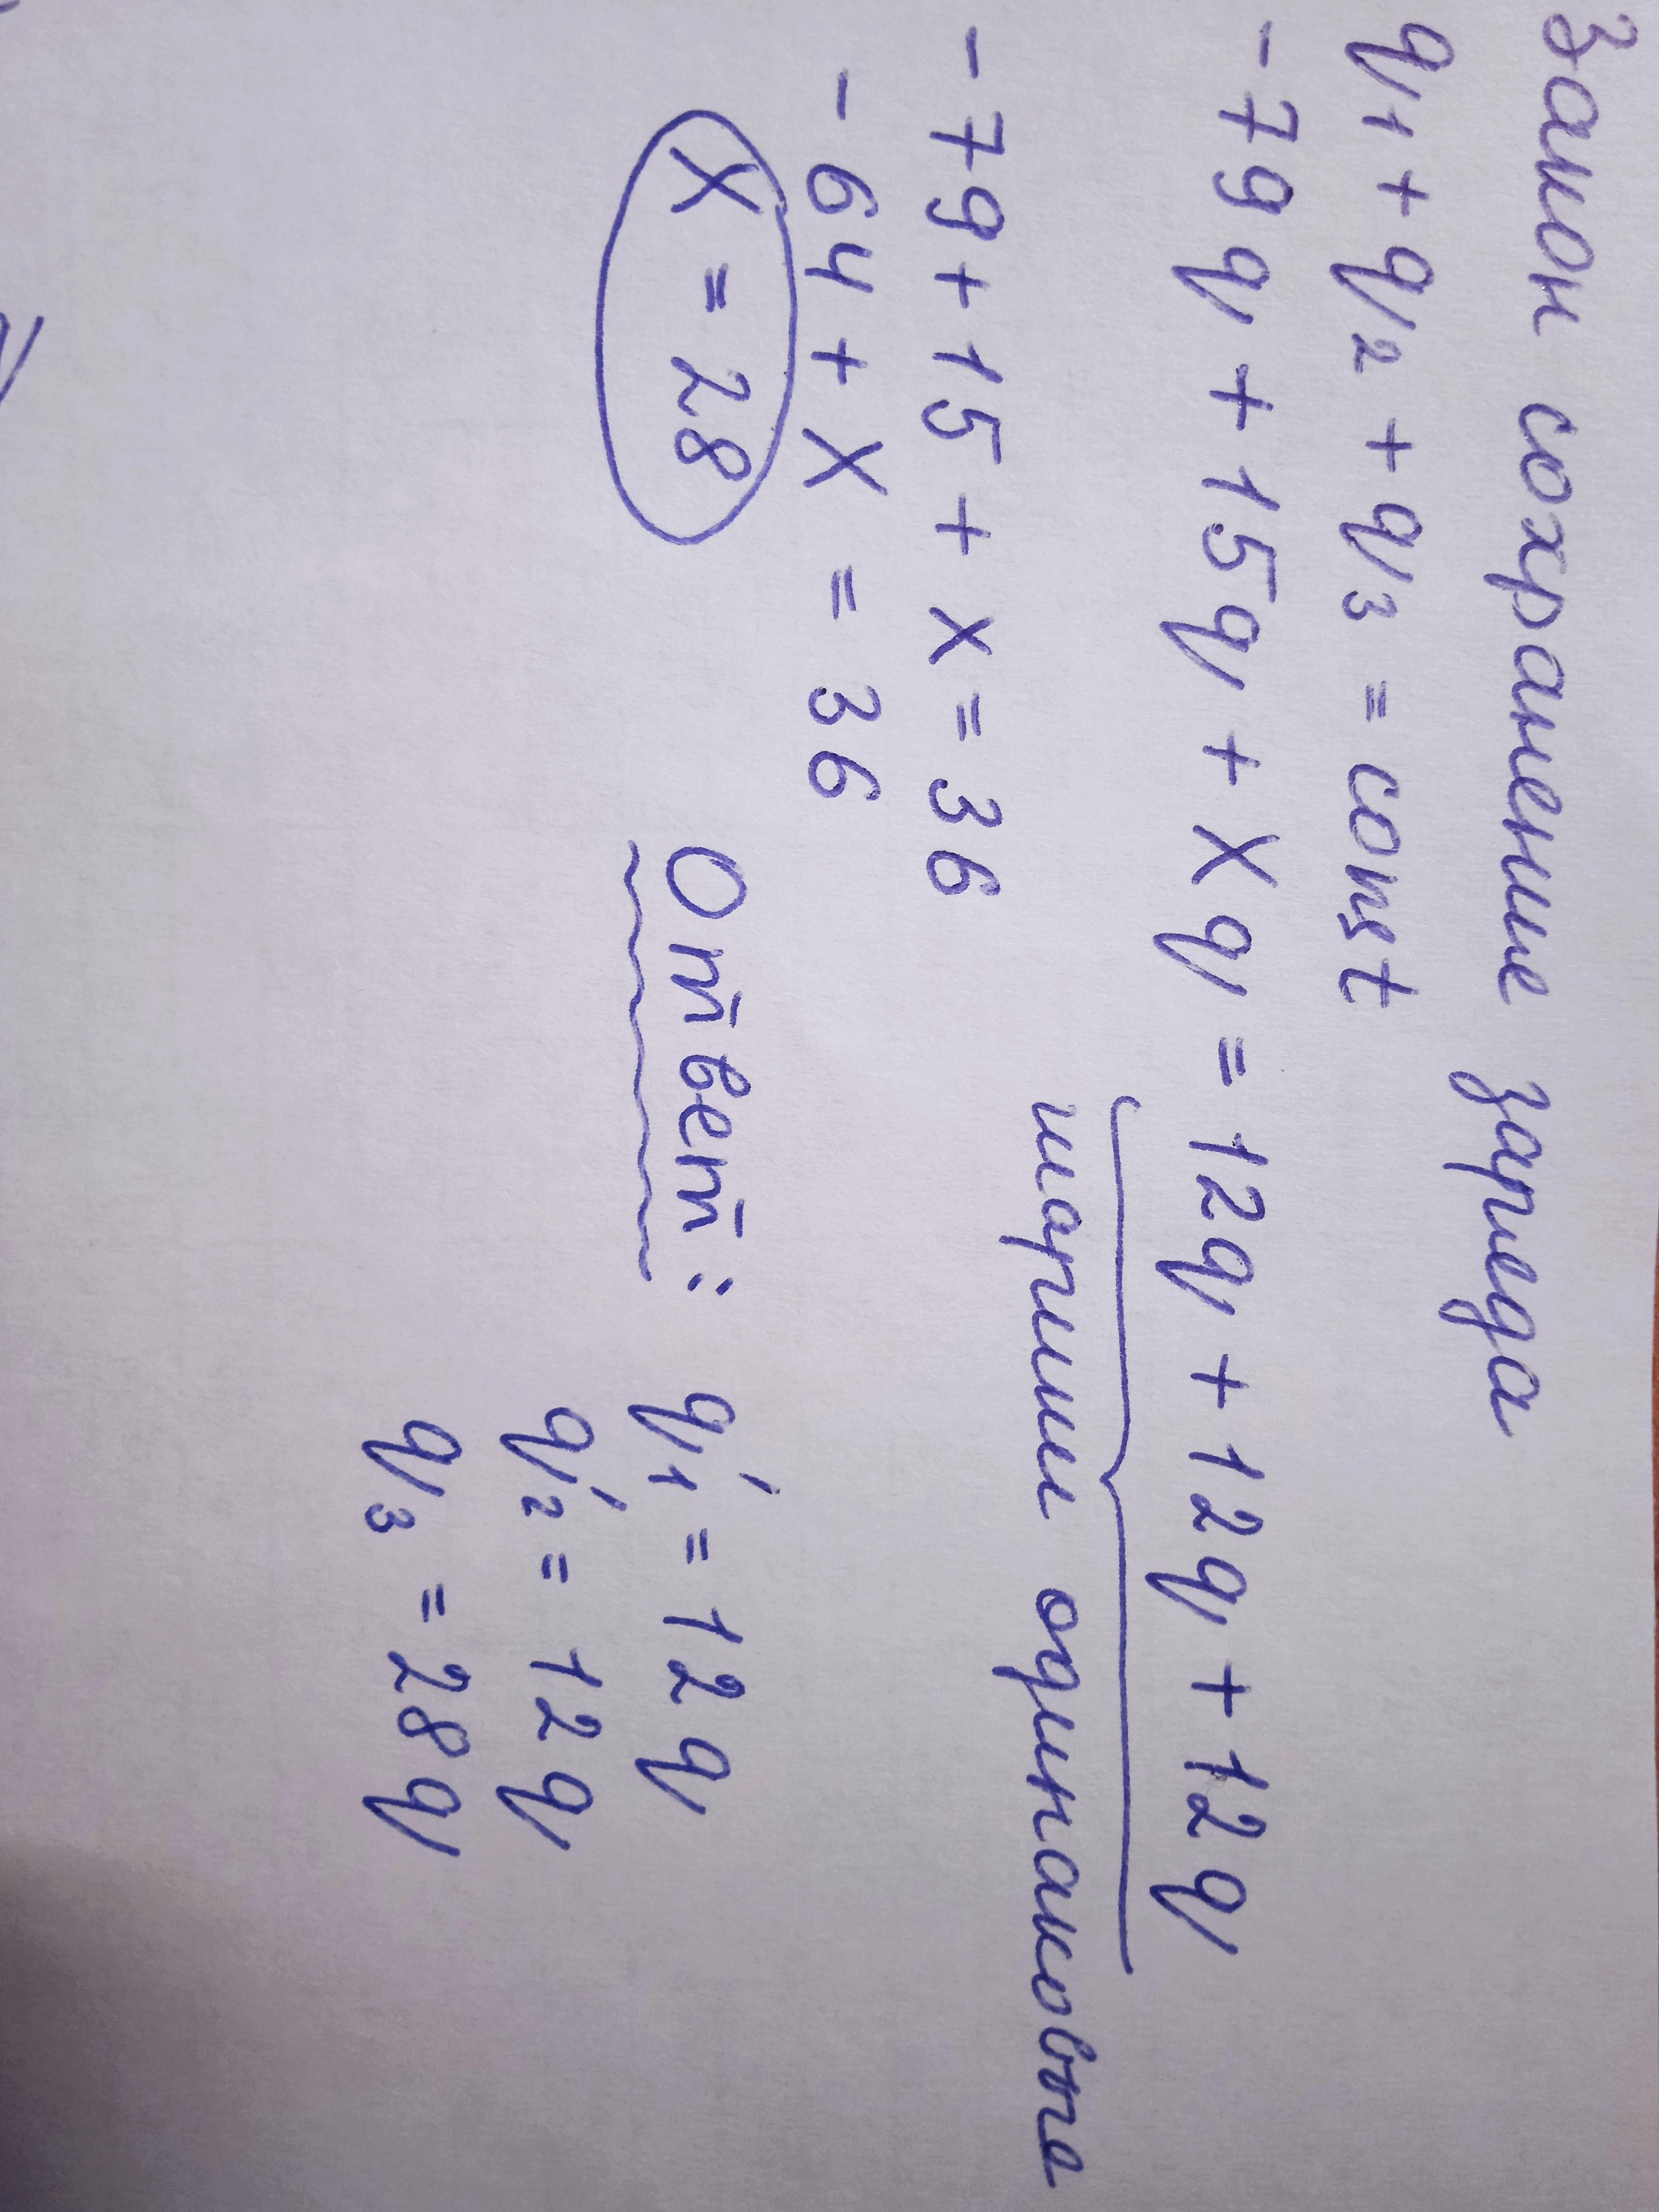 Закон сохранение зареда
q1 + q2 + q3 = const
-79q + 15q + Xq = 12q + 12q + 12q
шарики одинаковые
-79 + 15 + x = 36
-64 + X = 36
X = 28
Ответ: q'1 = 12q
q'2 = 12q
q3 = 28q